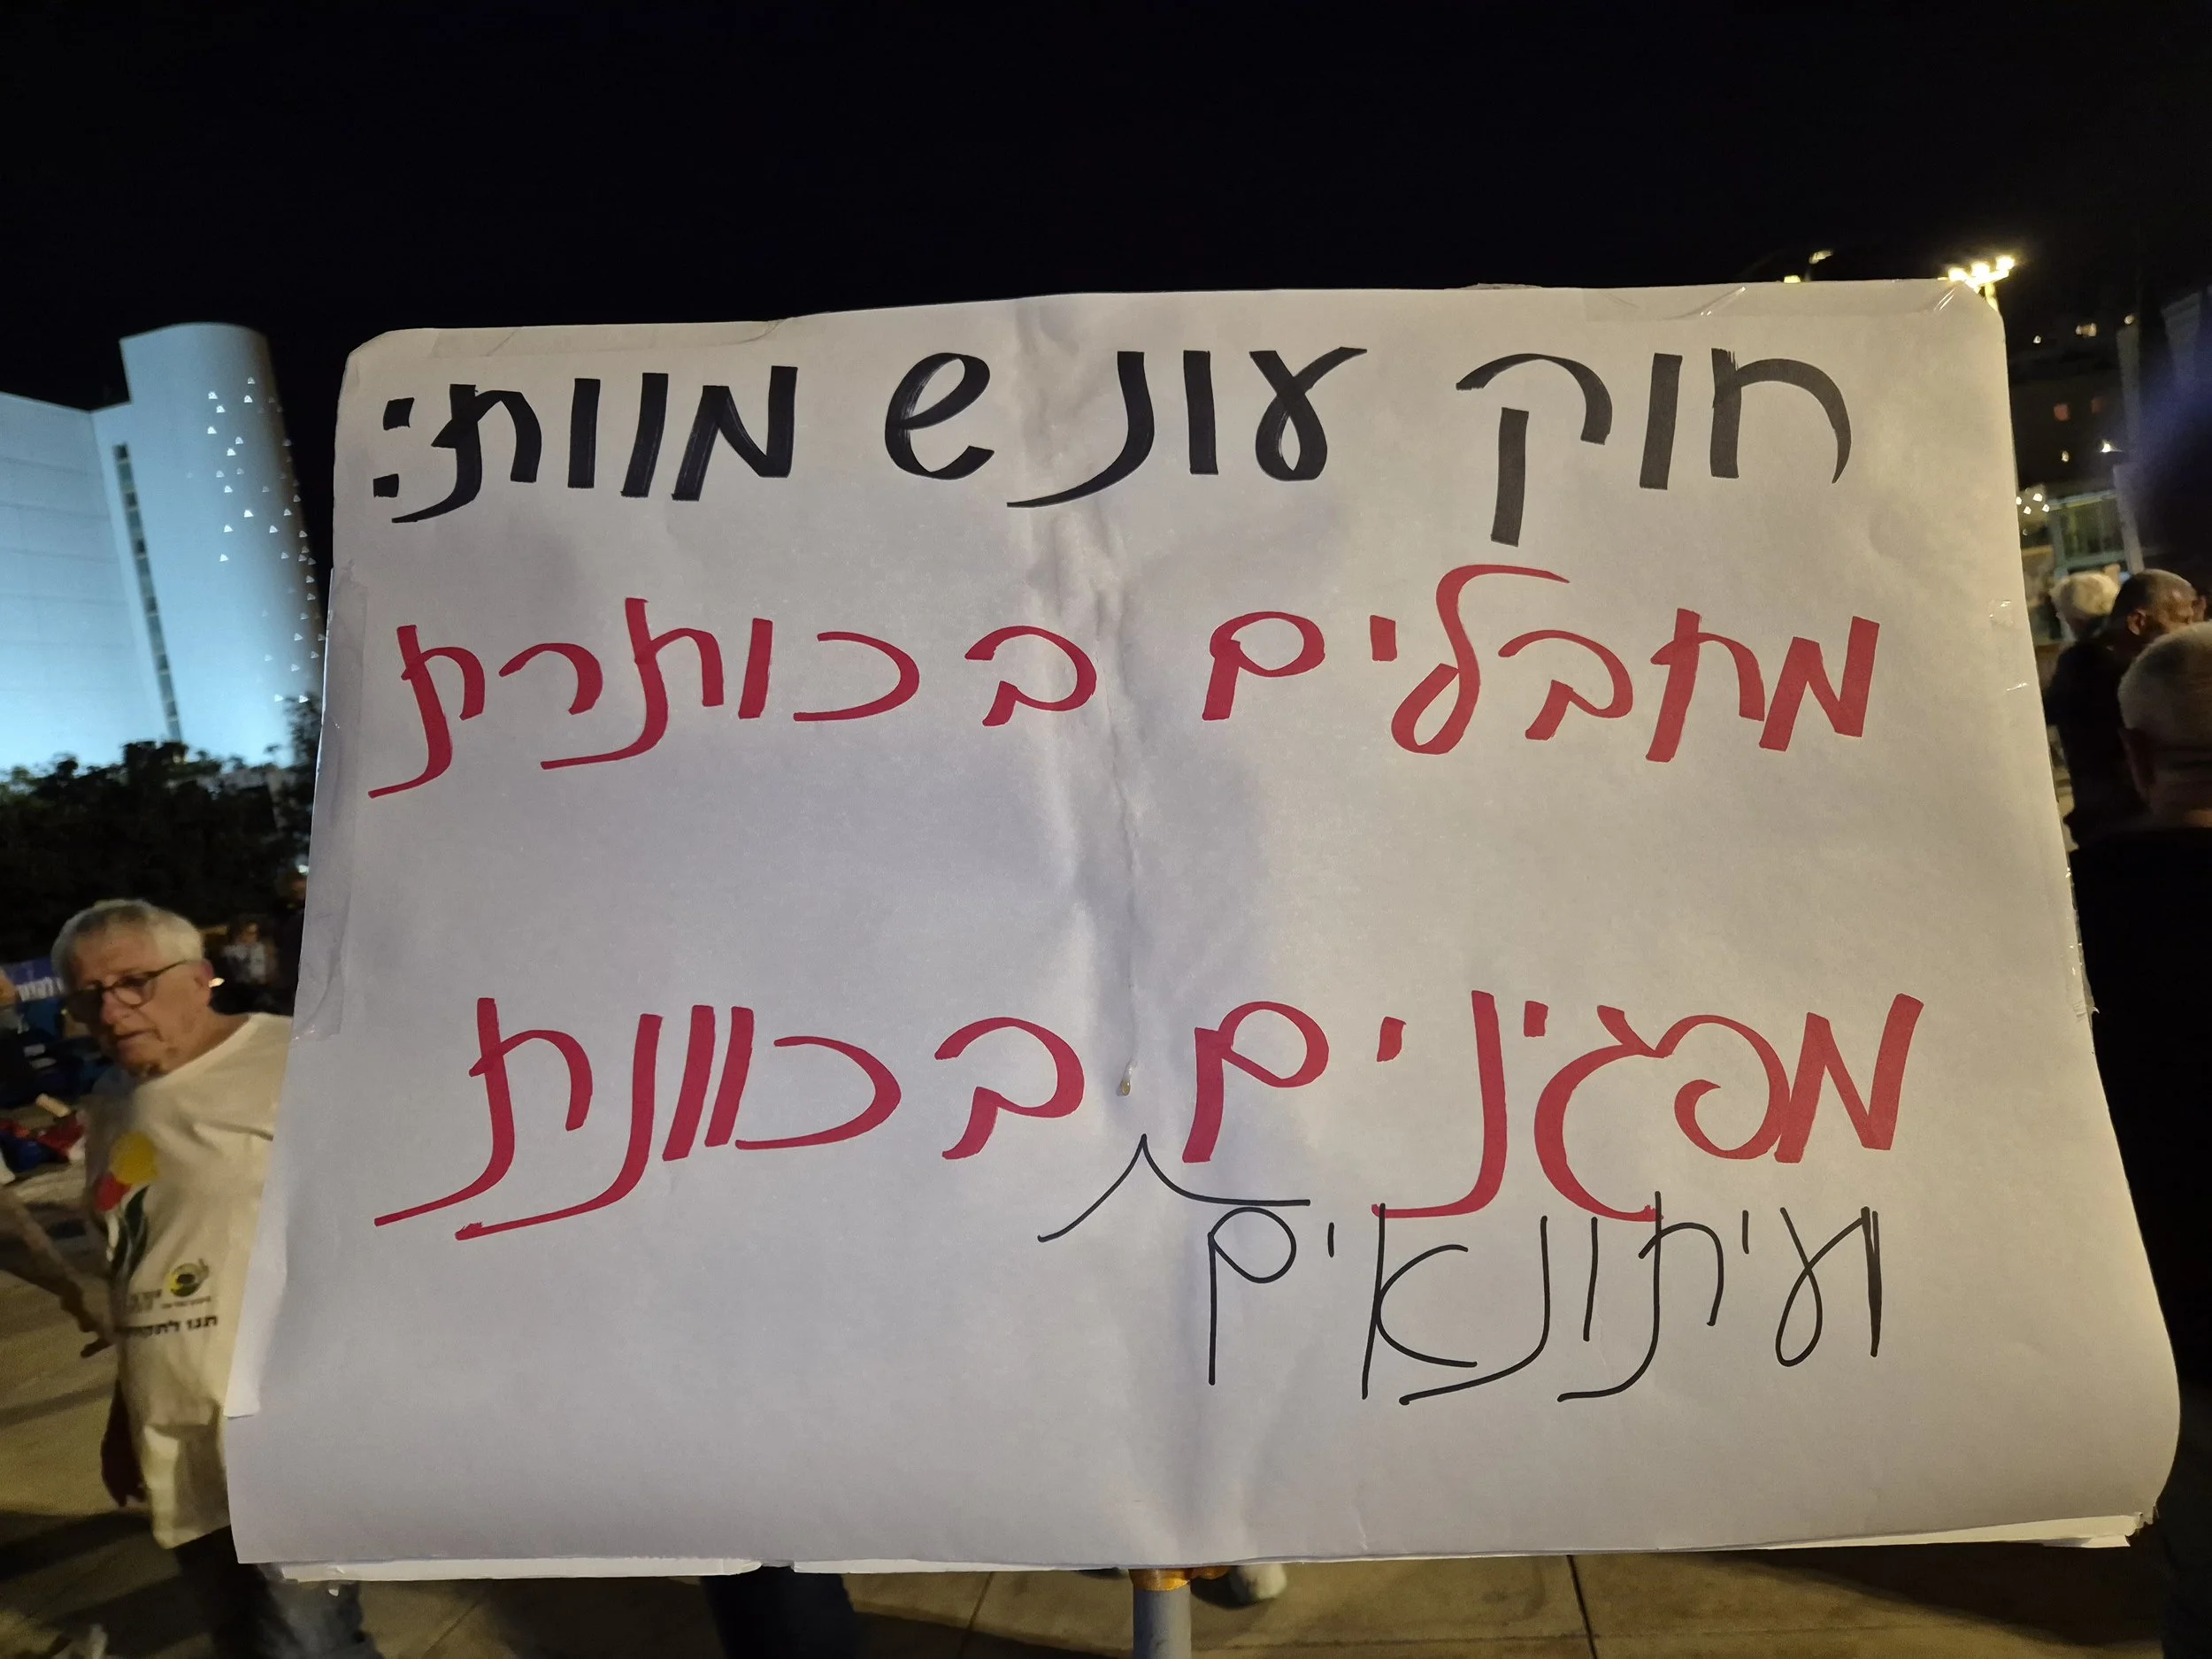 חוק עונש מוות:
מחבלים בכותרת
מפגינים בכוונת
ועיתונאים